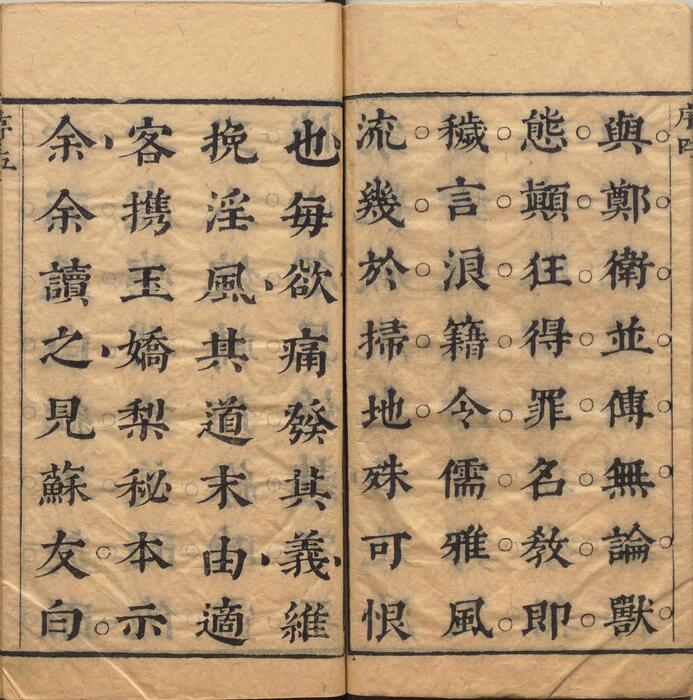 序四
與鄭衛並傳無論獸
態顛狂得罪名敎即
穢言浪籍令儒雅風
流幾於掃地殊可恨
也每欲痛發其義維
挽淫風其道末由適
客攜玉嬌梨秘本示
余余讀之見蘇友白
序五